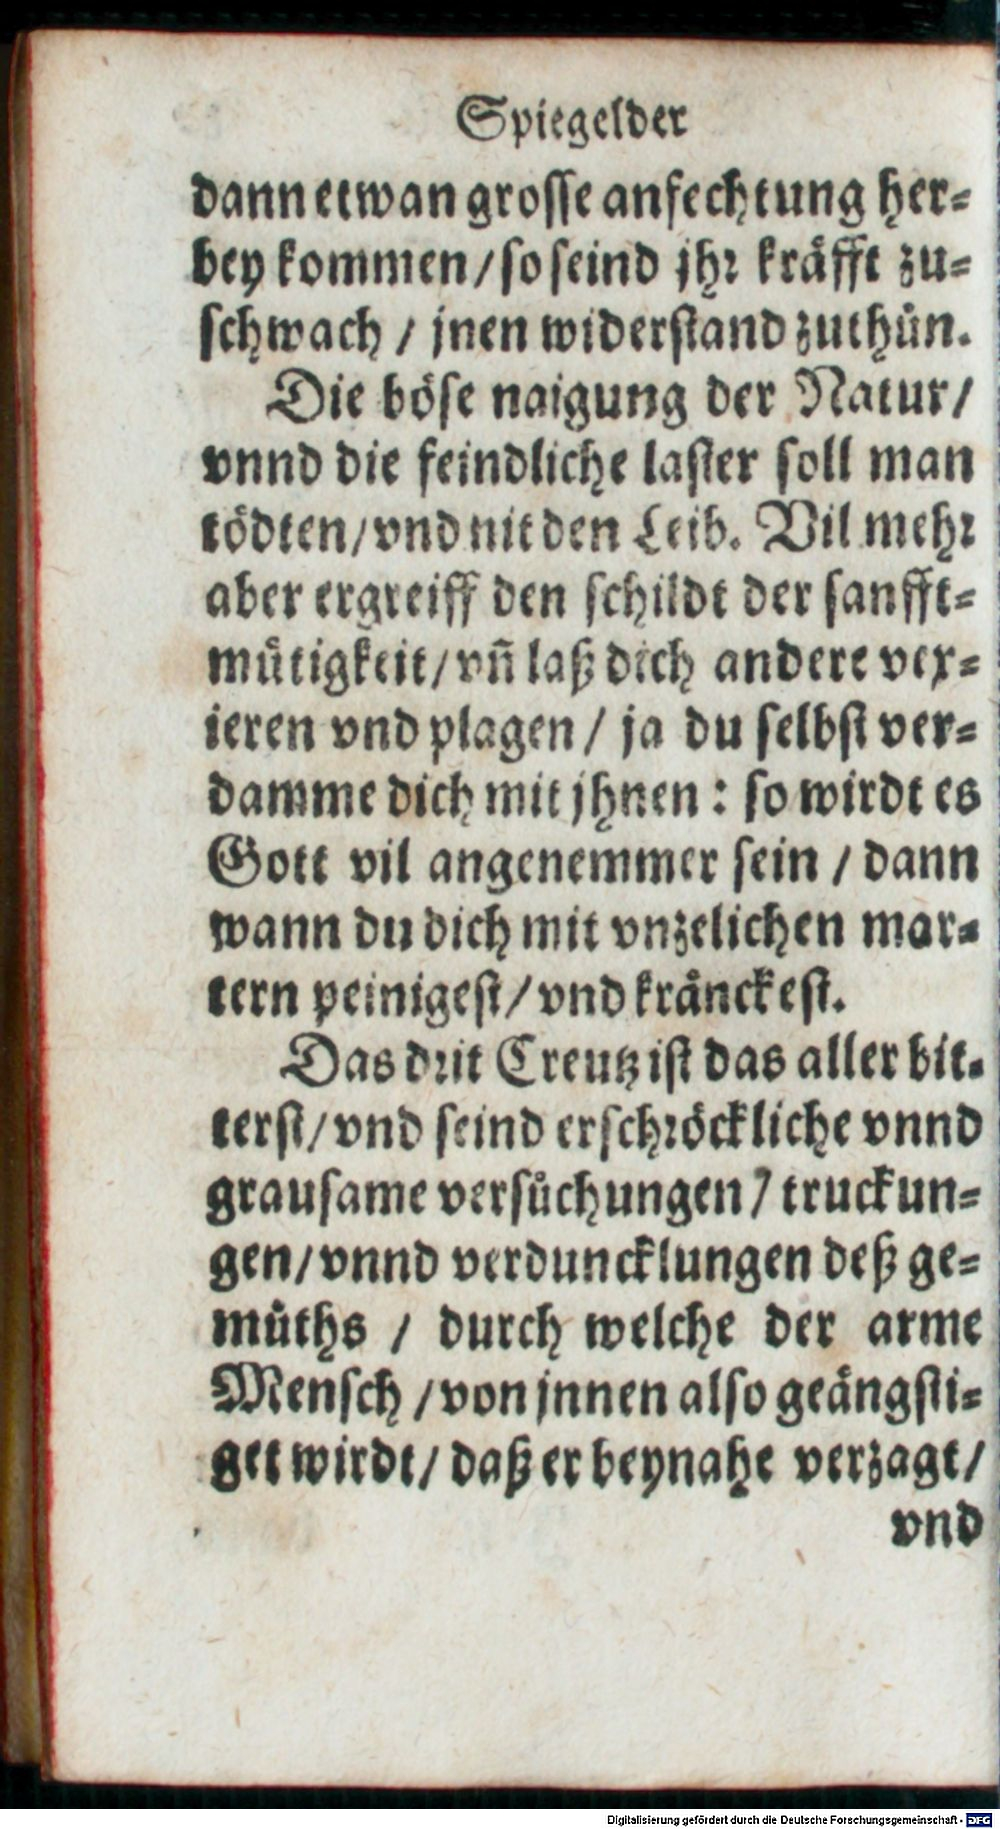 Spiegel der
dann etwan grosse anfechtung her-
bey kommen / so seind jhr kräfft zu-
schwach / jnen widerstand zuthůn.
Die böse naigung der Natur /
vnnd die feindliche laster soll man
tödten / vnd nit den Leib. Vil mehr
aber ergreiff den schildt der sanfft-
můtigkeit / vñ laß dich andere vex-
ieren vnd plagen / ja du selbst ver-
damme dich mit jhnen : so wirdt es
Gott vil angenemmer sein / dann
wann du dich mit vnzelichen mar-
tern peinigest / vnd kränckest.
Das drit Creutz ist das aller bit-
terst / vnd seind erschröckliche vnnd
grausame versůchungen / truckun-
gen / vnnd verduncklungen deß ge-
můths / durch welche der arme
Mensch / von jnnen also geängsti-
get wirdt / daß er beynahe verzagt /
vnd
Digitalisierung gefördert durch die Deutsche Forschungsgemeinschaft - DFG